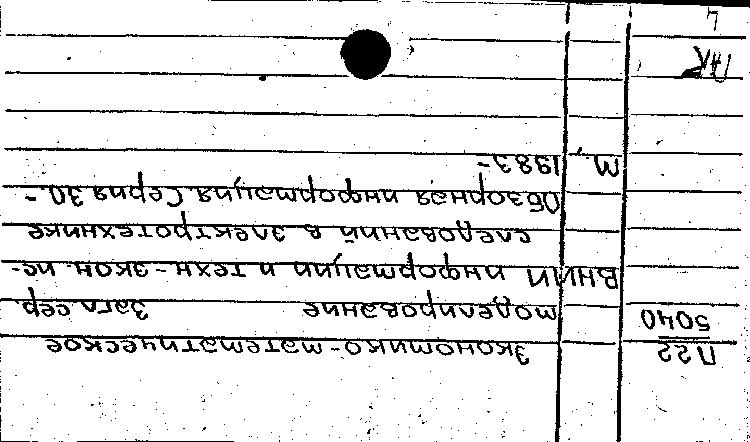 П22
5040
Экономико-математическое
моделирование Загл. сер.
ВНИИ информации и техн.-экон. ис-
следований в электротехнике
Обзорная информация. Серия 30.-
М., 1983-
4